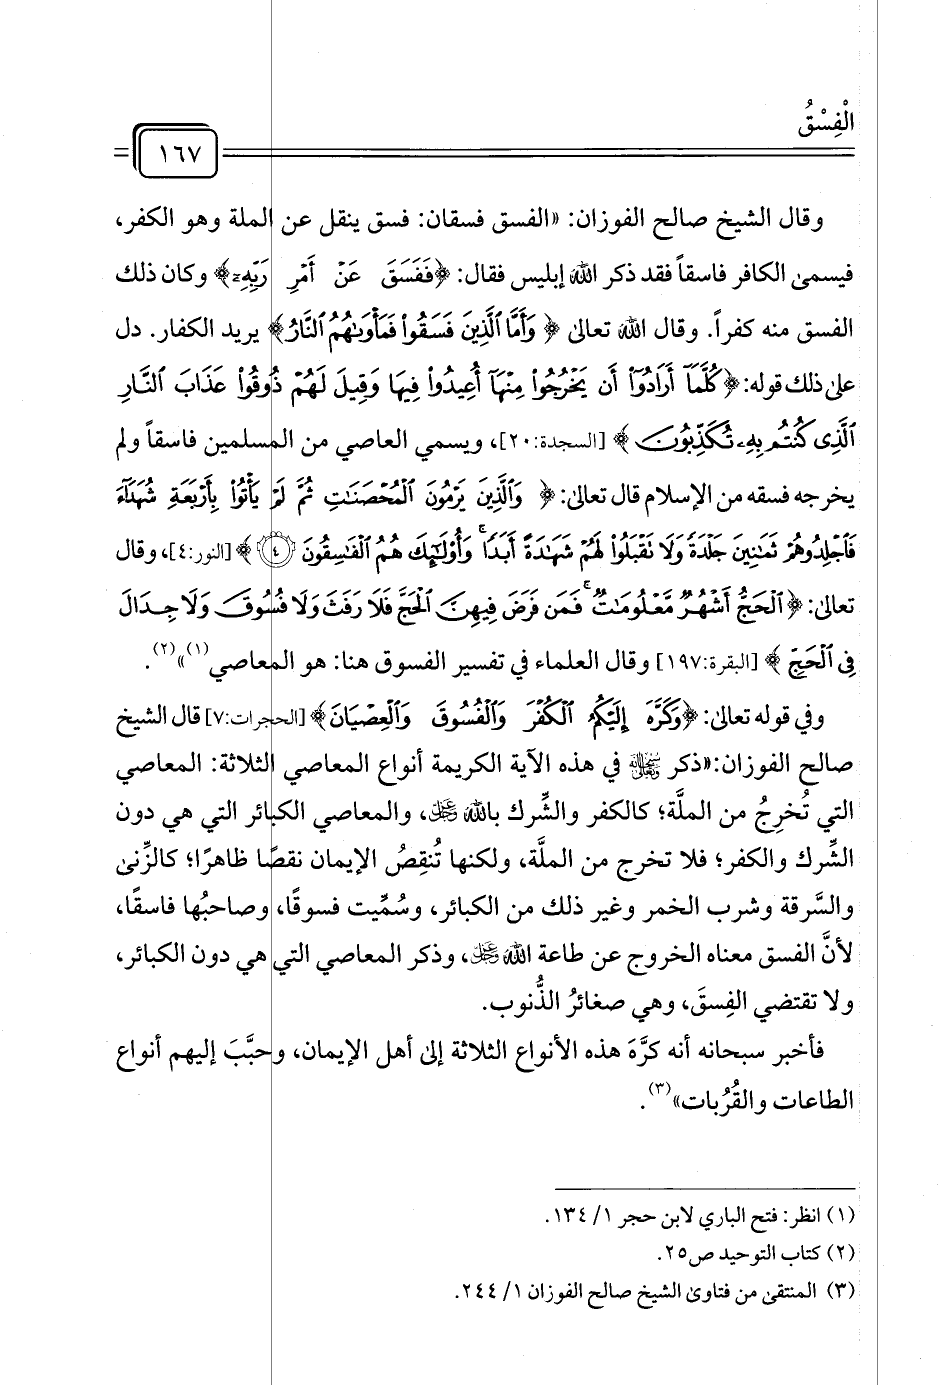 الْفِسْقُ
١٦٧
وقال الشيخ صالح الفوزان: «الفسق فسقان: فسق ينقل عن الملة وهو الكفر،
فيسمىٰ الكافر فاسقاً فقد ذكر الله إبليس فقال: ﴿فَفَسَقَ عَنْ أَمْرِ رَبِّهِۦ﴾ وكان ذلك
الفسق منه كفراً. وقال الله تعالىٰ ﴿وَأَمَّا ٱلَّذِينَ فَسَقُوا۟ فَمَأْوَىٰهُمُ ٱلنَّارُ﴾ يريد الكفار. دل
علىٰ ذلك قوله: ﴿كُلَّمَآ أَرَادُوٓا۟ أَن يَخْرُجُوا۟ مِنْهَآ أُعِيدُوا۟ فِيهَا وَقِيلَ لَهُمْ ذُوقُوا۟ عَذَابَ ٱلنَّارِ
ٱلَّذِى كُنتُم بِهِۦ تُكَذِّبُونَ﴾ [السجدة:٢٠]، ويسمي العاصي من المسلمين فاسقاً ولم
يخرجه فسقه من الإسلام قال تعالىٰ: ﴿وَٱلَّذِينَ يَرْمُونَ ٱلْمُحْصَنَٰتِ ثُمَّ لَمْ يَأْتُوا۟ بِأَرْبَعَةِ شُهَدَآءَ
فَٱجْلِدُوهُمْ ثَمَٰنِينَ جَلْدَةً وَلَا تَقْبَلُوا۟ لَهُمْ شَهَٰدَةً أَبَدًا ۚ وَأُو۟لَٰٓئِكَ هُمُ ٱلْفَٰسِقُونَ ٤﴾ [النور:٤]، وقال
تعالىٰ: ﴿ٱلْحَجُّ أَشْهُرٌ مَّعْلُومَٰتٌ ۚ فَمَن فَرَضَ فِيهِنَّ ٱلْحَجَّ فَلَا رَفَثَ وَلَا فُسُوقَ وَلَا جِدَالَ
فِى ٱلْحَجِّ﴾ [البقرة:١٩٧] وقال العلماء في تفسير الفسوق هنا: هو المعاصي(١)»(٢).
وفي قوله تعالىٰ: ﴿وَكَرَّهَ إِلَيْكُمُ ٱلْكُفْرَ وَٱلْفُسُوقَ وَٱلْعِصْيَانَ﴾ [الحجرات:٧] قال الشيخ
صالح الفوزان: «ذكر ﷾ في هذه الآية الكريمة أنواع المعاصي الثلاثة: المعاصي
التي تُخرِجُ من الملَّة؛ كالكفر والشِّرك بالله ﷿، والمعاصي الكبائر التي هي دون
الشِّرك والكفر؛ فلا تخرج من الملَّة، ولكنها تُنقِصُ الإيمان نقصًا ظاهرًا؛ كالزِّنىٰ
والسَّرقة وشرب الخمر وغير ذلك من الكبائر، وسُمِّيت فسوقًا، وصاحبُها فاسقًا،
لأنَّ الفسق معناه الخروج عن طاعة الله ﷿، وذكر المعاصي التي هي دون الكبائر،
ولا تقتضي الفِسقَ، وهي صغائرُ الذُّنوب.
فأخبر سبحانه أنه كرَّهَ هذه الأنواع الثلاثة إلىٰ أهل الإيمان، وحبَّبَ إليهم أنواع
الطاعات والقُرُبات»(٣).
(١) انظر: فتح الباري لابن حجر ١/ ١٣٤.
(٢) كتاب التوحيد ص٢٥.
(٣) المنتقىٰ من فتاوىٰ الشيخ صالح الفوزان ١/ ٢٤٤.